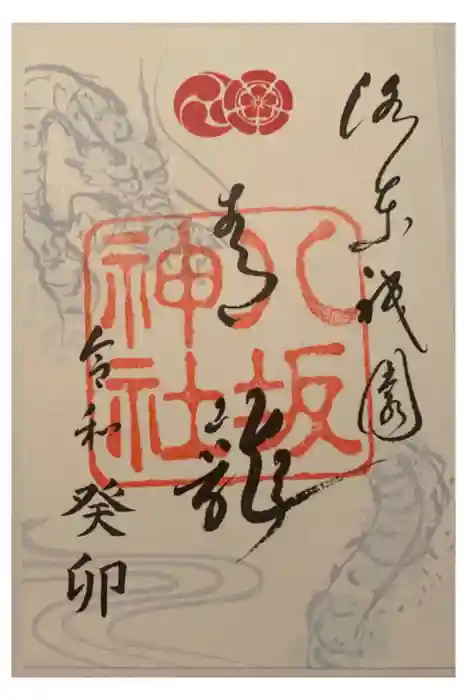 洛東祇園
青龍
八坂
神社
令和
癸卯